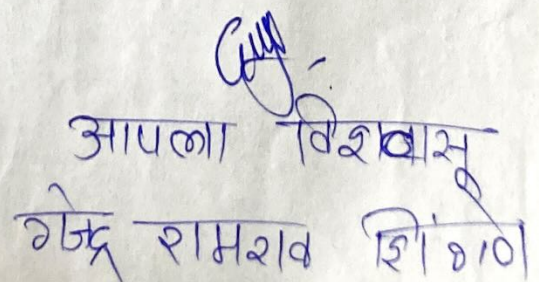 आपला विश्वासू
गजेंद्र रामराव शिंगणे